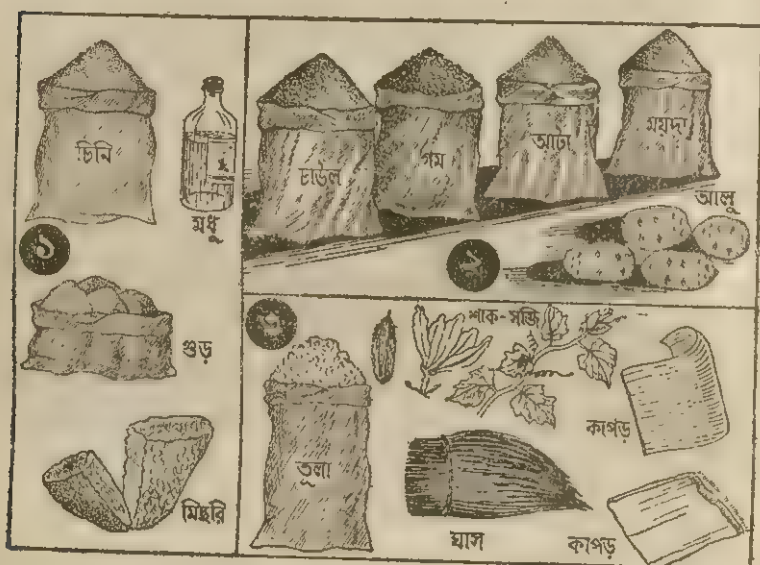 চিনি
মধু
১
গুড়
মিছরি
চাউল
গম
আটা
ময়দা
আলু
২
৩
শাক-সব্জি
তুলা
কাপড়
ঘাস
কাপড়